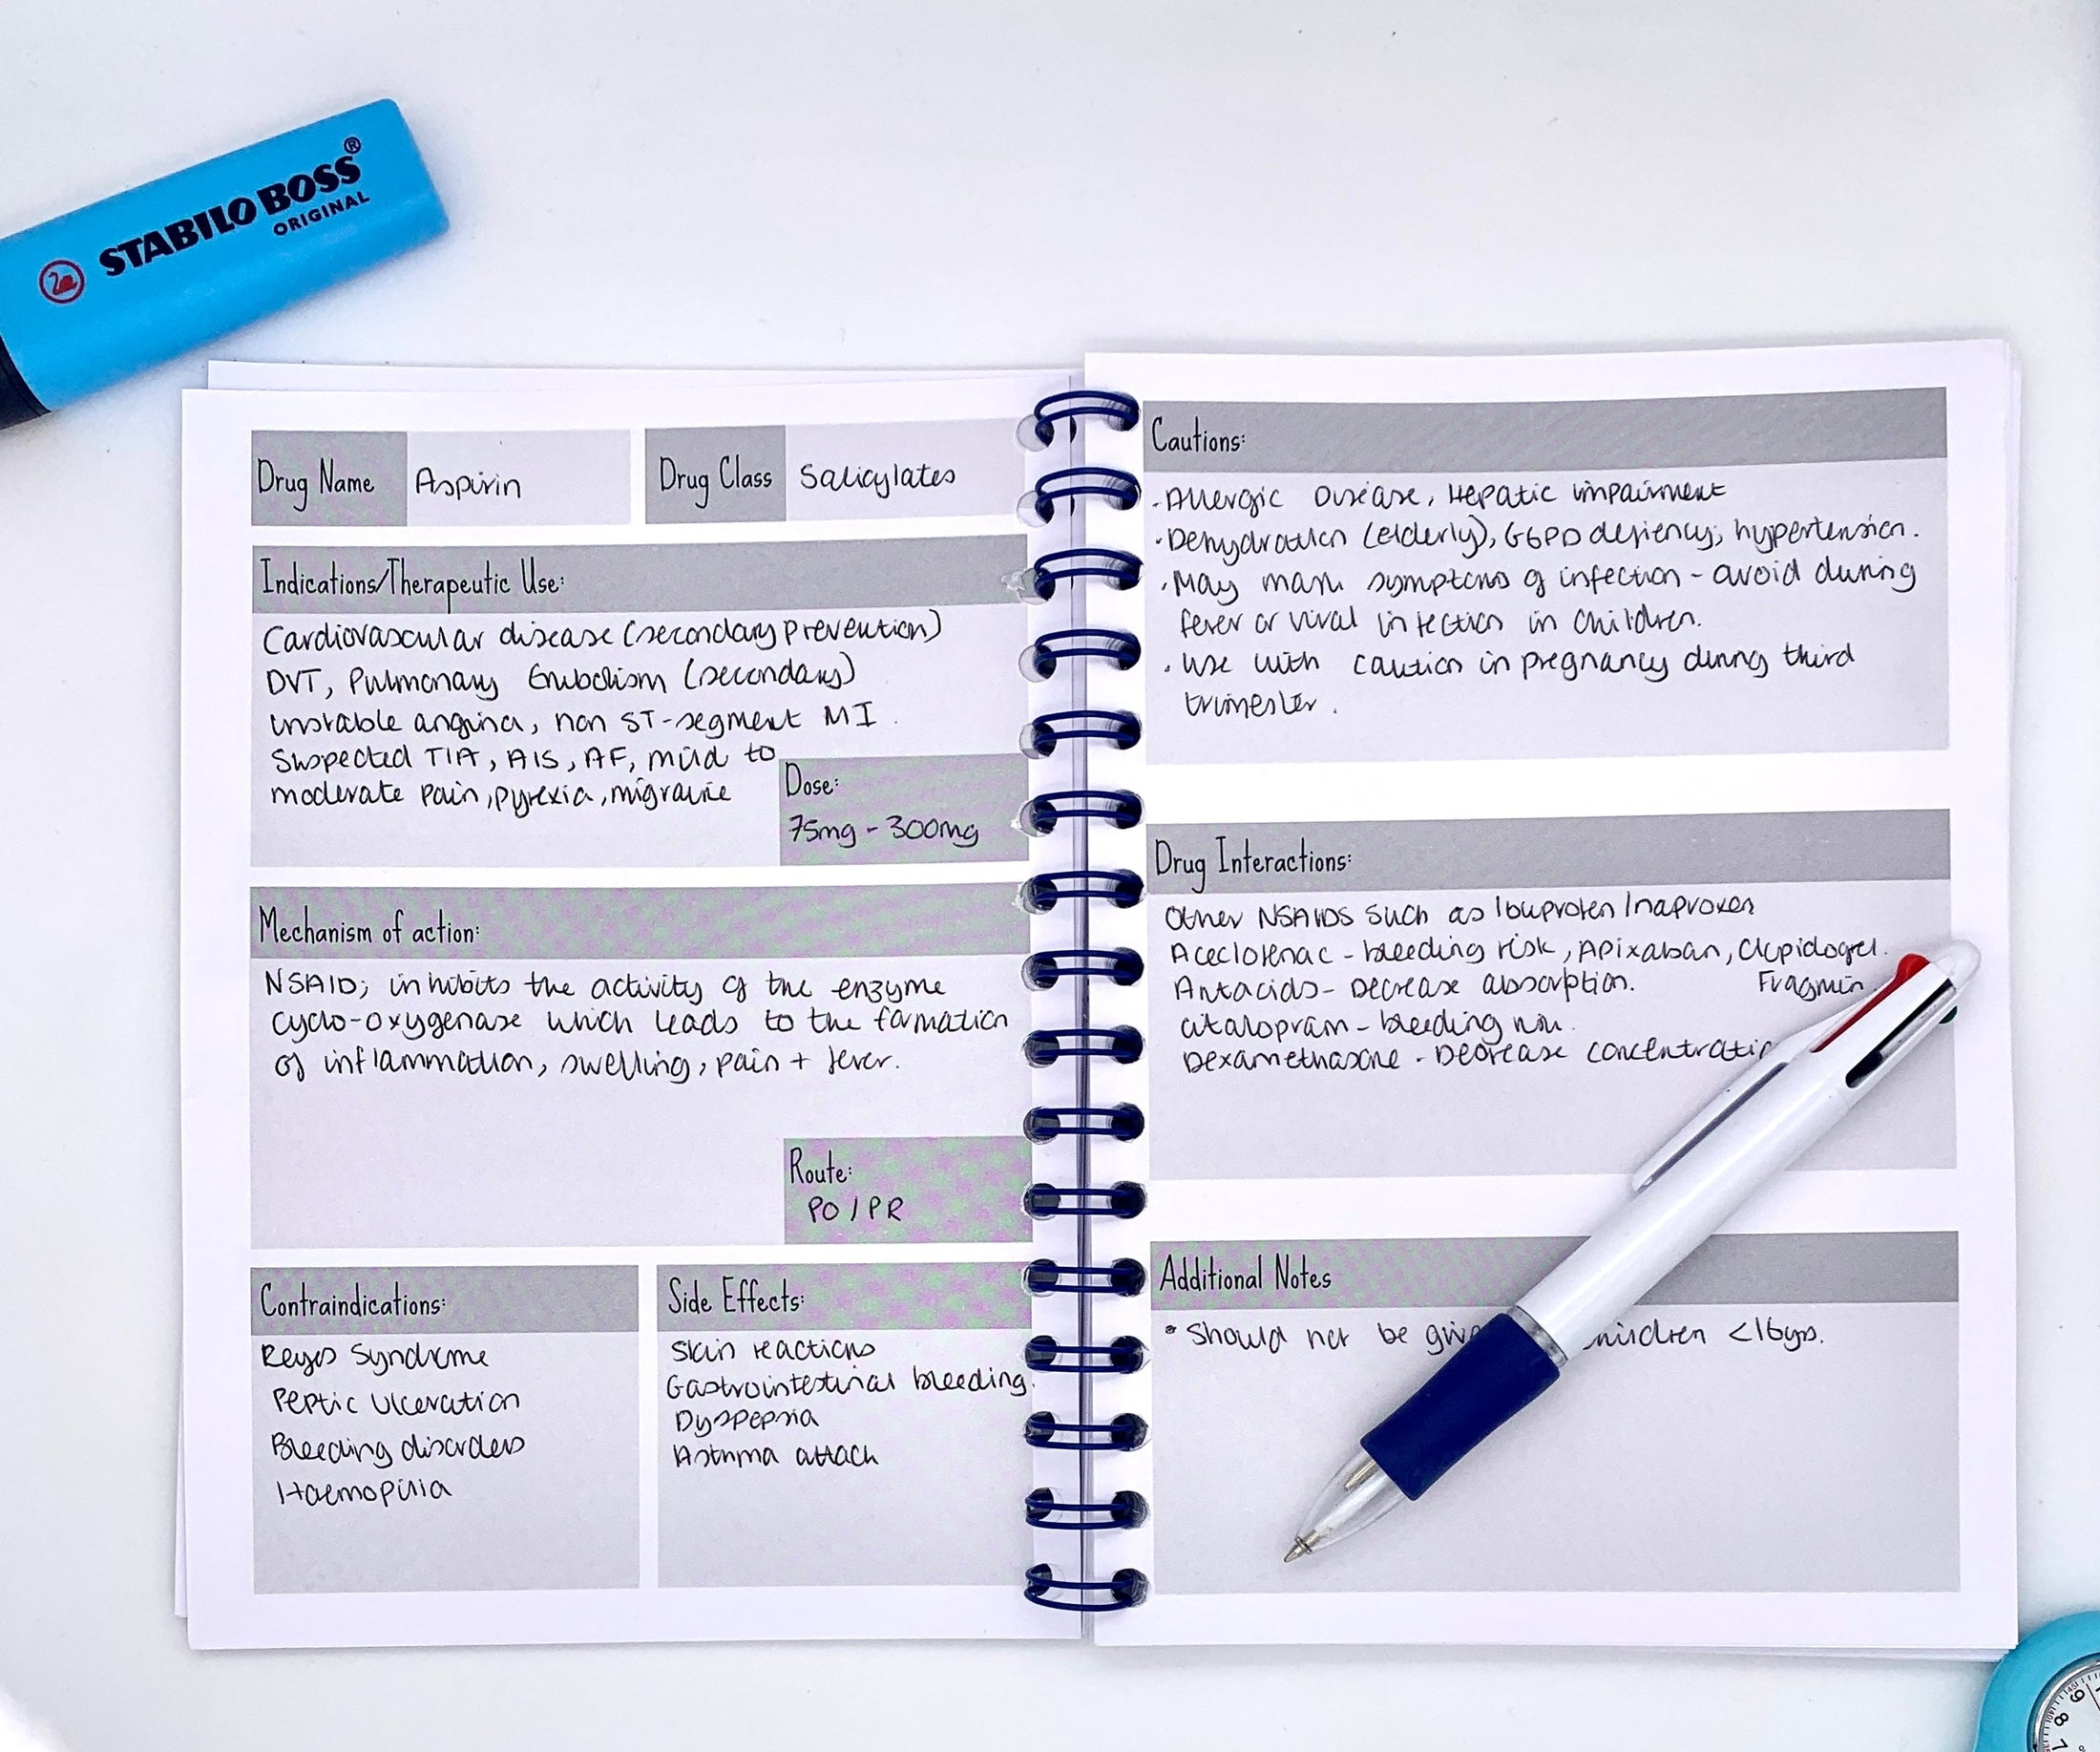 STABILO BOSS®
ORIGINAL
Drug Name
Aspirin
Drug Class
Salicylates
Indications/Therapeutic Use:
Cardiovascular disease (secondary prevention)
DVT, Pulmonary Embolism (secondary)
unstable angina, non ST-segment MI.
Suspected TIA, AIS, AF, mild to
moderate pain, pyrexia, migraine
Dose:
75mg - 300mg
Mechanism of action:
NSAID; inhibits the activity of the enzyme
cyclo-oxygenase which leads to the formation
of inflammation, swelling, pain + fever.
Route:
PO / PR
Contraindications:
Reyes Syndrome
Peptic ulceration
Bleeding disorders
Haemopilia
Side Effects:
Skin reactions
Gastrointestinal bleeding.
Dyspepsia
Asthma attack
Cautions:
· Allergic Disease, Hepatic impairment
· Dehydration (elderly), G6PD defiency, hypertension.
· May mask symptoms of infection - avoid during
fever or viral infection in children.
· Use with caution in pregnancy during third
trimester.
Drug Interactions:
Other NSAIDS such as Ibuprofen/naproxen
Aceclofenac - bleeding risk, Apixaban, Clopidogrel.
Fragmin
Antacids - Decrease absorption.
citalopram - bleeding
Dexamethasone - Decrease concentratio
Additional Notes
* Should not be give children <16yrs.
9
8
7